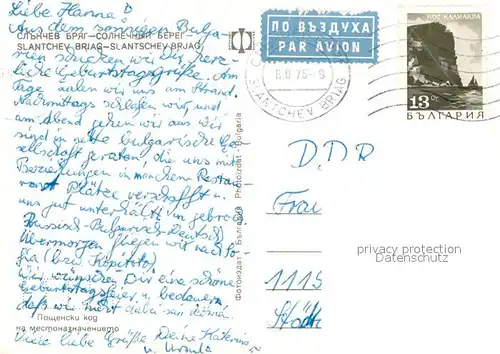 Liebe Hanna!
Aus dem sonnigen Bulga-
СЛЪНЧЕВ БРЯГ—СОЛНЕЧНЫЙ БЕРЕГ
SLANTCHEV BRIAG—SLANTSCHEV BRJAG
rien schicken wir Dir herz-
liche Geburtstagsgrüße. Am
Tage aalen wir uns am Strand.
Nachmittags schlafen wir und
am Abend gehen wir aus. Wir
sind in nette bulgarische Ge-
sellschaft geraten, die uns mit
Beziehungen in manchem Restau-
rant Plätze verschafft u.
uns gut unterhält in gebroch.
Russisch-Bulgarisch-Deutsch
Übermorgen fliegen wir nach So-
fia (bzw. Kopitoto).
Wir wünschen Dir eine schöne
Geburtstagsfeier u. bedauern,
daß wir nicht dabei sein können.
Пощенски код
на местоназначението
Viele liebe Grüße Deine Katerina
u. Ursula
Фотоиздат · България Photoizdat · Bulgaria
ПО ВЪЗДУХА
PAR AVION
SLANTCHEV BRIAG
НОС КАЛИАКРА
13 СТ.
БЪЛГАРИЯ
DDR
Frau
1115
privacy protection
Datenschutz